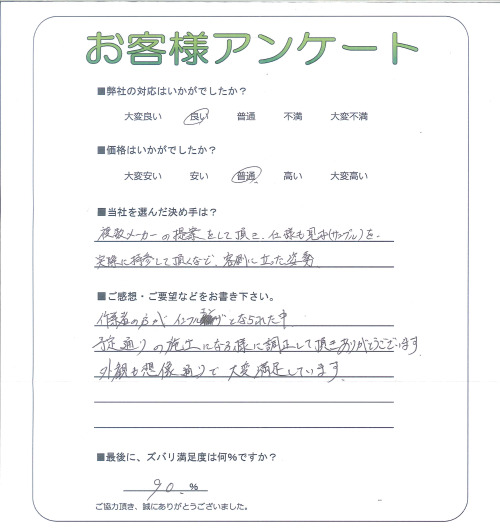 お客様アンケート
■弊社の対応はいかがでしたか？
大変良い 良い 普通 不満 大変不満
■価格はいかがでしたか？
大変安い 安い 普通 高い 大変高い
■当社を選んだ決め手は？
複数メーカーの提案をして頂き、仕様も見本(サンプル)を、
実際に持参して頂くなど、客側に立った姿勢
■ご感想・ご要望などをお書き下さい。
作業者の方が インフル となられた中
予定通りの施工になる様に調正して頂きありがとうございます
外観も想像通りで大変満足しています。
■最後に、ズバリ満足度は何％ですか？
90. ％
ご協力頂き、誠にありがとうございました。